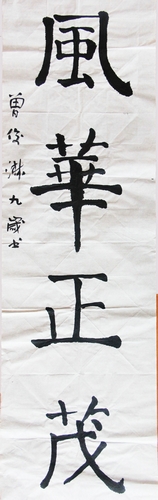 風華正茂
曾俊 九歲书